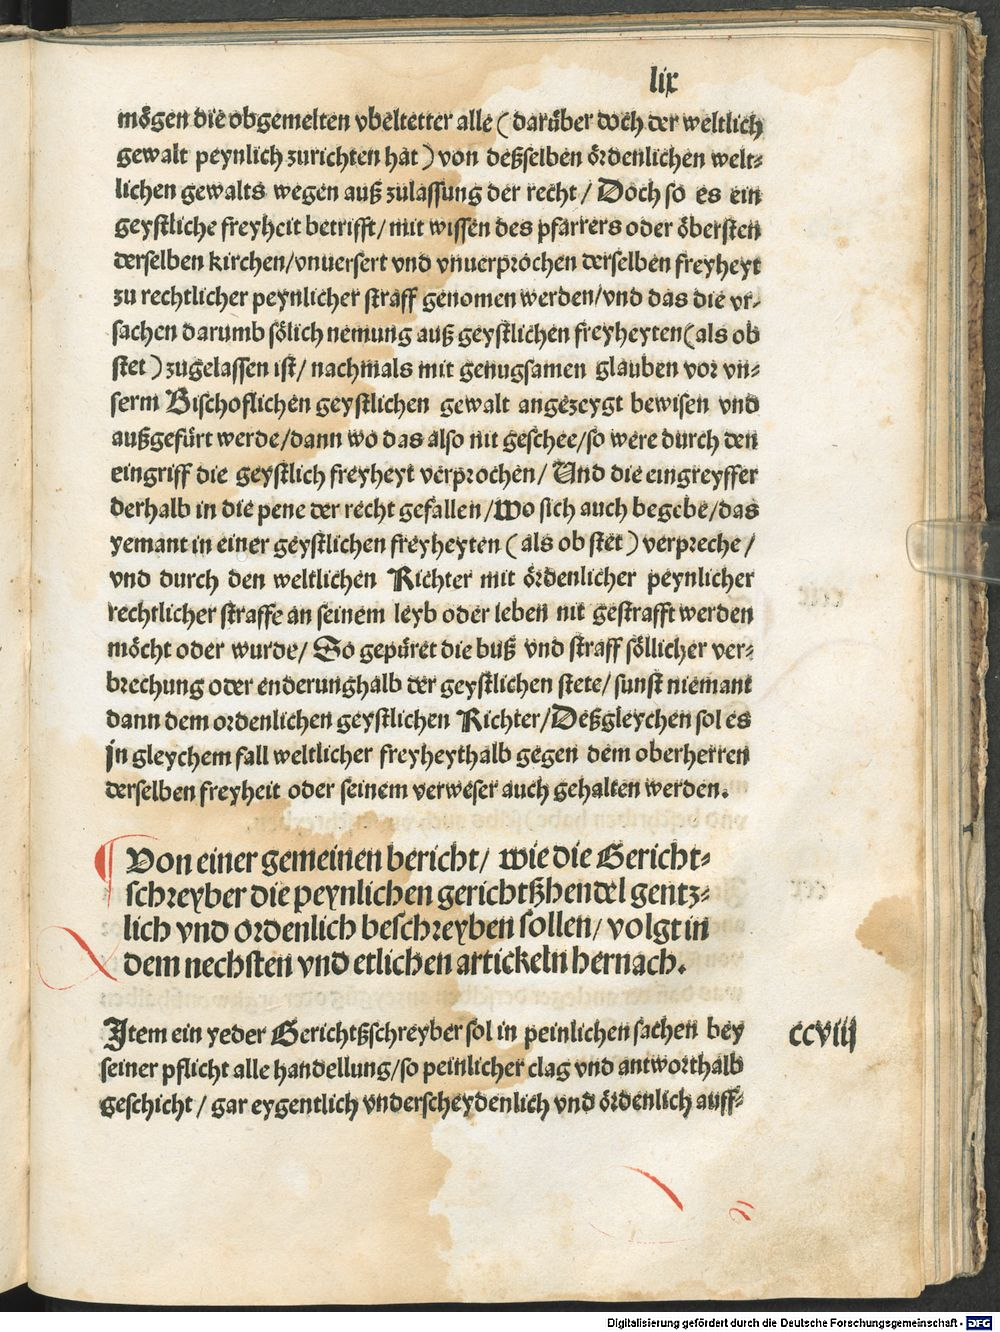 lix
mögen die obgemelten vbeltetter alle (darüber doch der weltlich
gewalt peynlich zurichten hat) von deßselben ördenlichen welt-
lichen gewalts wegen auß zulassung der recht/ Doch so es ein
geystliche freyheit betrifft/ mit wissen des pfarrers oder öbersten
derselben kirchen/vnuersert vnd vnuerprochen derselben freyheyt
zu rechtlicher peynlicher straff genomen werden/vnd das die vr-
sachen darumb sölich nemung auß geystlichen freyheyten(als ob
stet) zugelassen ist/ nachmals mit genugsamen glauben vor vn-
serm Bischoflichen geystlichen gewalt angezeygt bewisen vnd
außgefürt werde/dann wo das also nit geschee/so were durch den
eingriff die geystlich freyheyt verprochen/ Und die eingreyffer
derhalb in die pene der recht gefallen/Wo sich auch begebe/das
yemant in einer geystlichen freyheyten (als ob stet) verpreche/
vnd durch den weltlichen Richter mit ördenlicher peynlicher
rechtlicher straffe an seinem leyb oder leben nit gestrafft werden
möcht oder wurde/ So gepüret die buß vnd straff söllicher ver-
brechung oder enderunghalb der geystlichen stete/ sunst niemant
dann dem ordenlichen geystlichen Richter/Deßgleychen sol es
in gleychem fall weltlicher freyheythalb gegen dem oberherren
derselben freyheit oder seinem verweser auch gehalten werden.
¶ Von einer gemeinen bericht/ wie die Gericht-
schreyber die peynlichen gerichtßhendel gentz-
lich vnd ordenlich beschreyben sollen/ volgt in
dem nechsten vnd etlichen artickeln hernach.
Item ein yeder Gerichtßschreyber sol in peinlichen sachen bey
ccviij
seiner pflicht alle handellung/so peinlicher clag vnd antworthalb
geschicht/ gar eygentlich vnderscheydenlich vnd ördenlich auff-
Digitalisierung gefördert durch die Deutsche Forschungsgemeinschaft - DFG